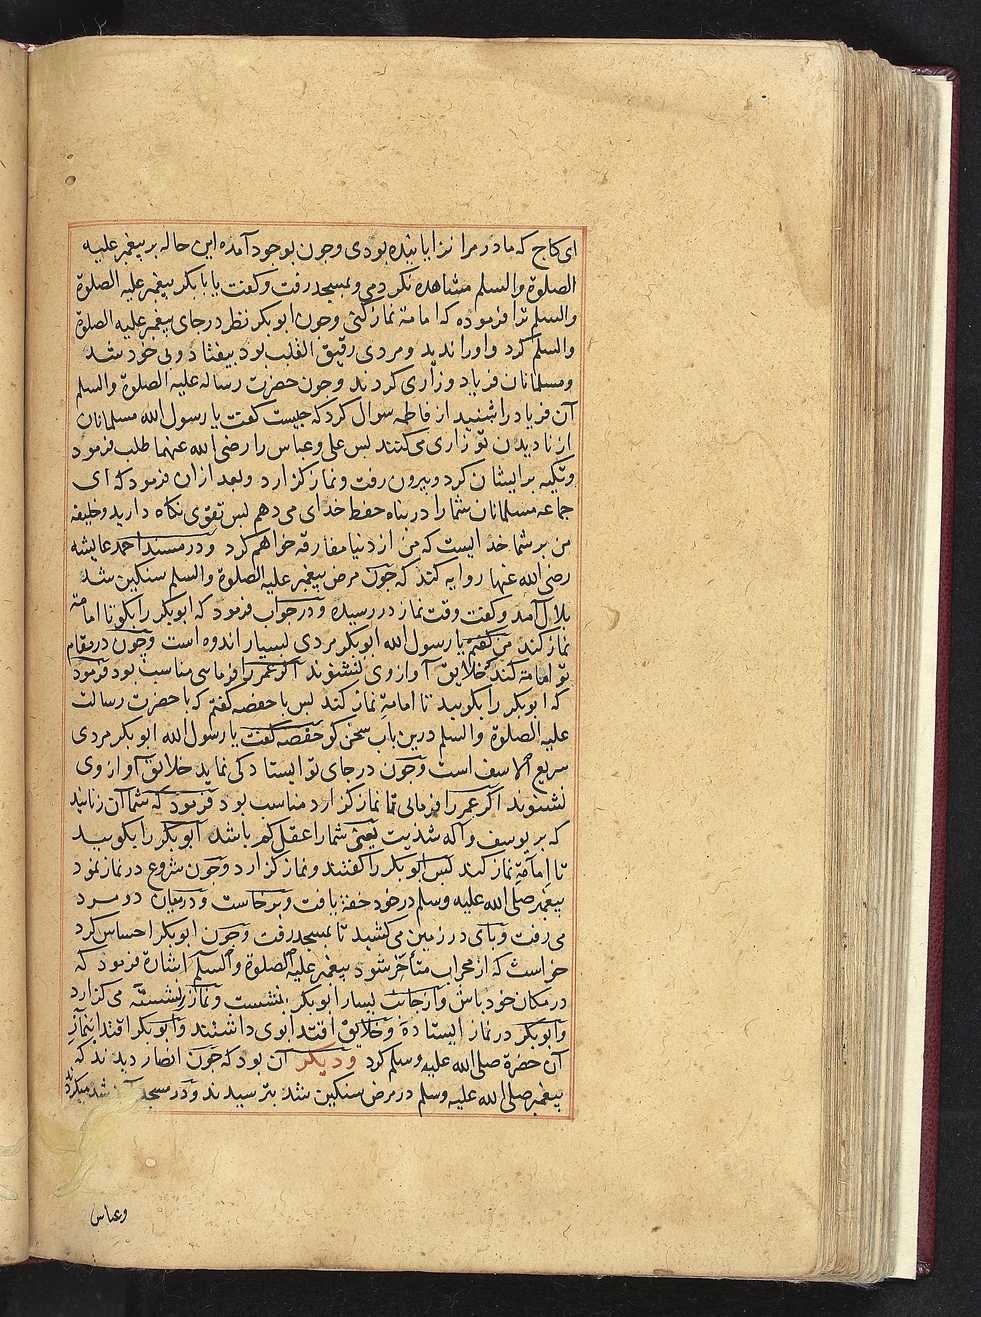 ای کاج که مادر مرا نزایانیده بودی وجون بوجود آمده این حاله بر پیغمبر علیه
الصلوة والسلم مشاهده نکردمی وبمسجد رفت وکفت یا بابکر پیغمبر علیه الصلوة
والسلم ترا فرموده که امامة نماز کنی وجون ابوبکر نظر در جای پیغمبر علیه الصلوة
والسلم کرد واورا ندید ومردی رقیق القلب بود بیفتاد وبی خود شد
ومسلمانان فریاد وزاری کردند وجون حضرت رساله علیه الصلوة والسلم
آن فریاد را شنید از فاطمه سوال کرد که جیست کفت یا رسول الله مسلمانان
از نادیدن تو زاری می کنند بس علی وعباس را رضی الله عنهما طلب فرمود
وتکیه بر ایشان کرد وبیرون رفت ونماز کزارد وبعد ازان فرمود که ای
جماعه مسلمانان شمارا در بناه حفظ خدای می دهم بس تقوی نکاه دارید وخلیفه
من بر شما خدایست که من از دنیا مفارقه خواهم کرد ودر مسند احمد عایشه
رضی الله عنها روایه کند که جون مرض بیغمبر علیه الصلوة والسلم سنکین شد
بلال آمد وکفت وقت نماز در رسیده ودر جواب فرمود که ابوبکر را بکو تا امامة
نماز کند من کفتم یا رسول الله ابوبکر مردی بسیار اندوه است وجون در مقام
تو امامة کند خلایق آواز وی نشنوند اکر عمر را فرمایی مناسب بود فرمود
که ابوبکر را بکویید تا امامة نماز کند بس با حفصه کفتم که با حضرت رسالت
علیه الصلوة والسلم درین باب سخن کو حفصه کفت یا رسول الله ابوبکر مردی
سریع الاسف است وجون در جای تو ایستادکی نماید خلایق آواز وی
نشنوند اکر عمر را فرمایی تا نماز کزارد مناسب بود فرمود که شما آن زنانید
که بر یوسف واله شدیت یعنی شمارا عقل کم باشد ابوبکر را بکویید
تا امامة نماز کند بس ابوبکر را کفتند ونماز کزارد وجون شروع در نماز نمود
بیغمبر صلی الله علیه وسلم در خود خفة یافت وبرخاست ودر میان دو مرد
می رفت وبای در زمین می کشید تا بمسجد رفت وجون ابوبکر احساس کرد
خواست که از محراب متأخر شود بیغمبر علیه الصلوة والسلم اشارة فرمود که
در مکان خود باش واز جانب یسار ابوبکر بنشست ونماز نشسته می کزارد
وابوبکر در نماز ایستاده وخلایق اقتدا بوی داشتند وابوبکر اقتدا بنماز
آن حضرة صلی الله علیه وسلم کرد ودیکر آن بود که جون انصار دیدند که
بیغمبر صلی الله علیه وسلم در مرض سنکین شد بترسیدند ودر مسجد شد میکردند
وعباس